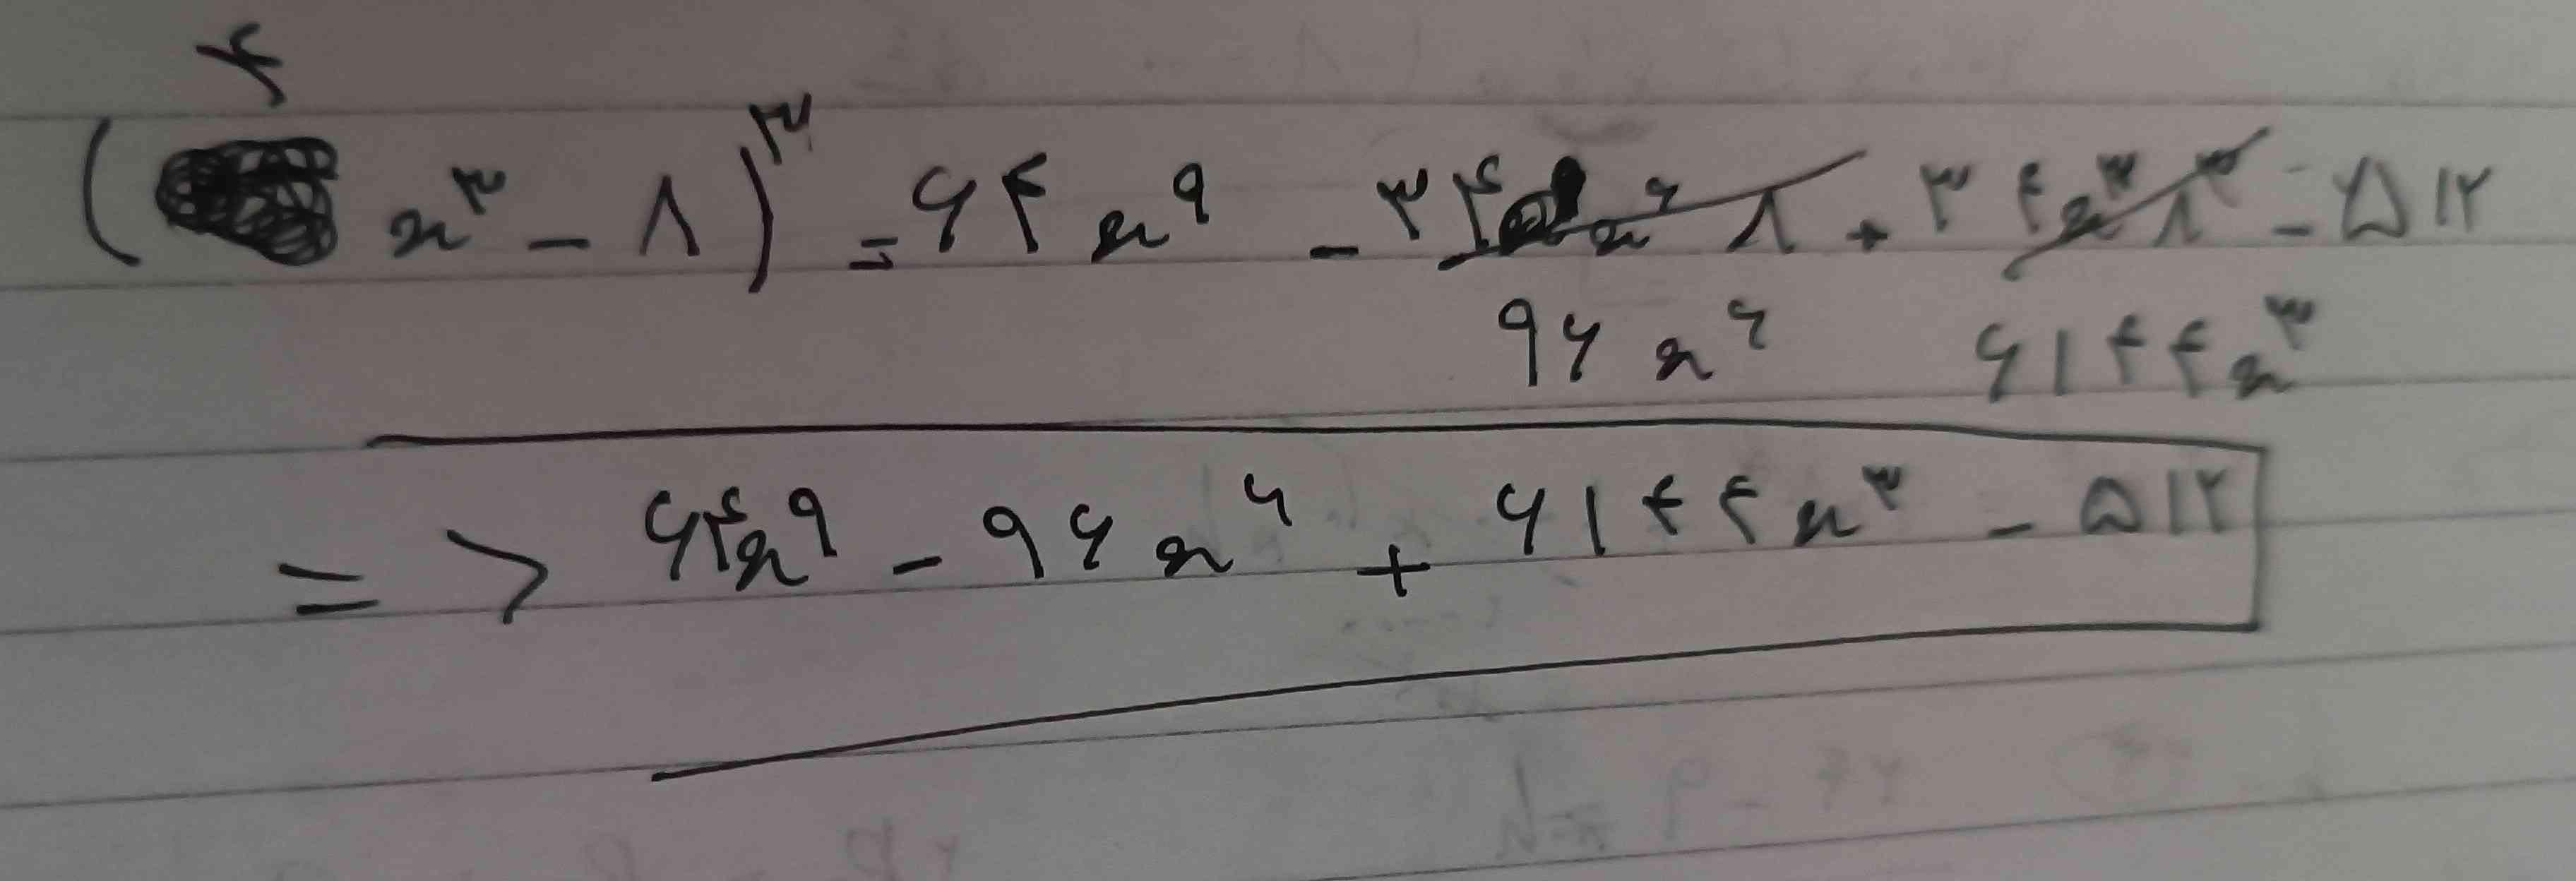 ۴
(x^۳ - ۸)^۳ = ۶۴ x^۹ - ۳ ۴ x^۶ ۸ + ۳ ۴ x^۳ ۸^۳ - ۵۱۲
۹۶ x^۶ ۶۱۴۴ x^۳
=> ۶۴x^۹ - ۹۶ x^۶ + ۶۱۴۴ x^۳ - ۵۱۲